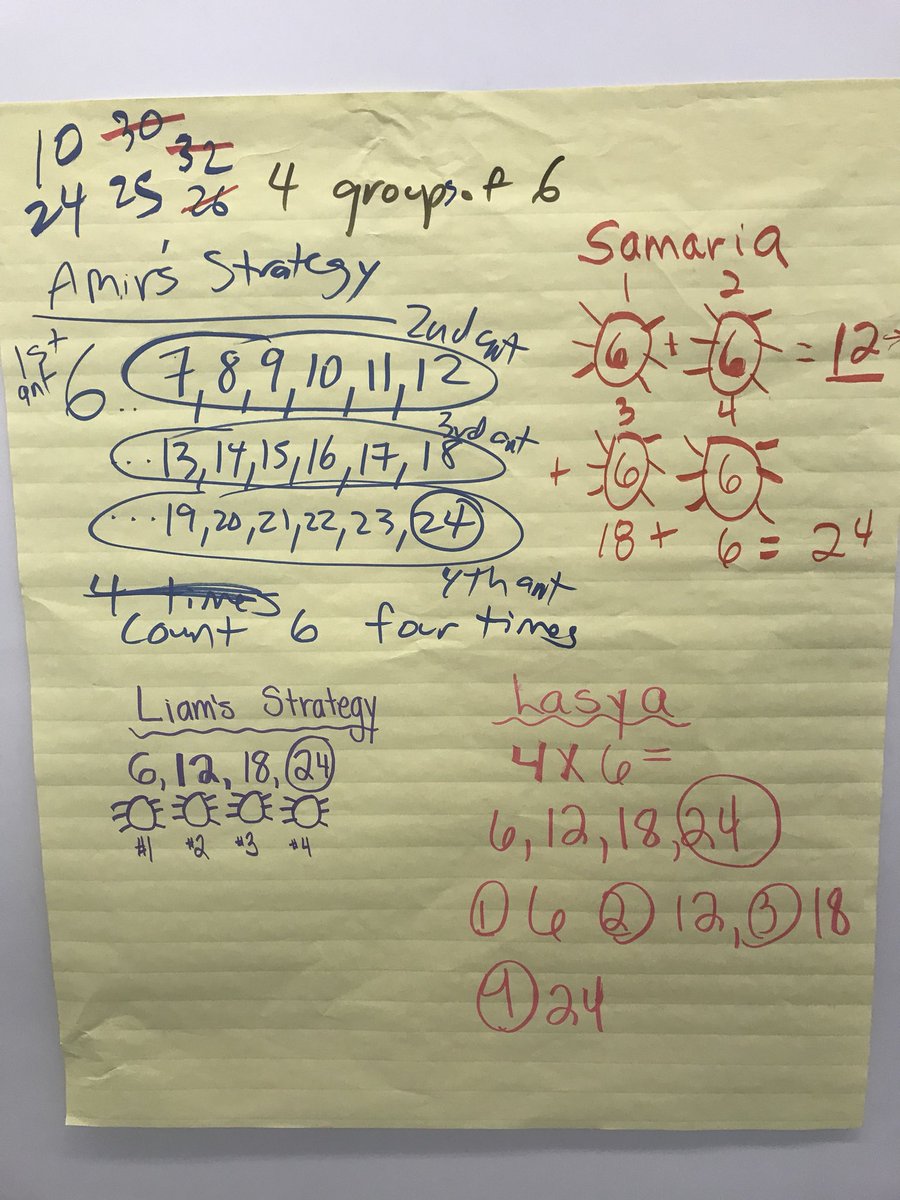 10 30 32
24 25 26 4 groups of 6
Amir's Strategy
1st ant 6 .. 7, 8, 9, 10, 11, 12 2nd ant
..13, 14, 15, 16, 17, 18 3rd ant
...19, 20, 21, 22, 23, 24
4th ant
4 times
Count 6 four times
Samaria
1 2
6 + 6 = 12 →
3 4
+ 6 6
18 + 6 = 24
Liam's Strategy
6, 12, 18, 24
#1 #2 #3 #4
Lasya
4 x 6 =
6, 12, 18, 24
1 6 2 12, 3 18
4 24